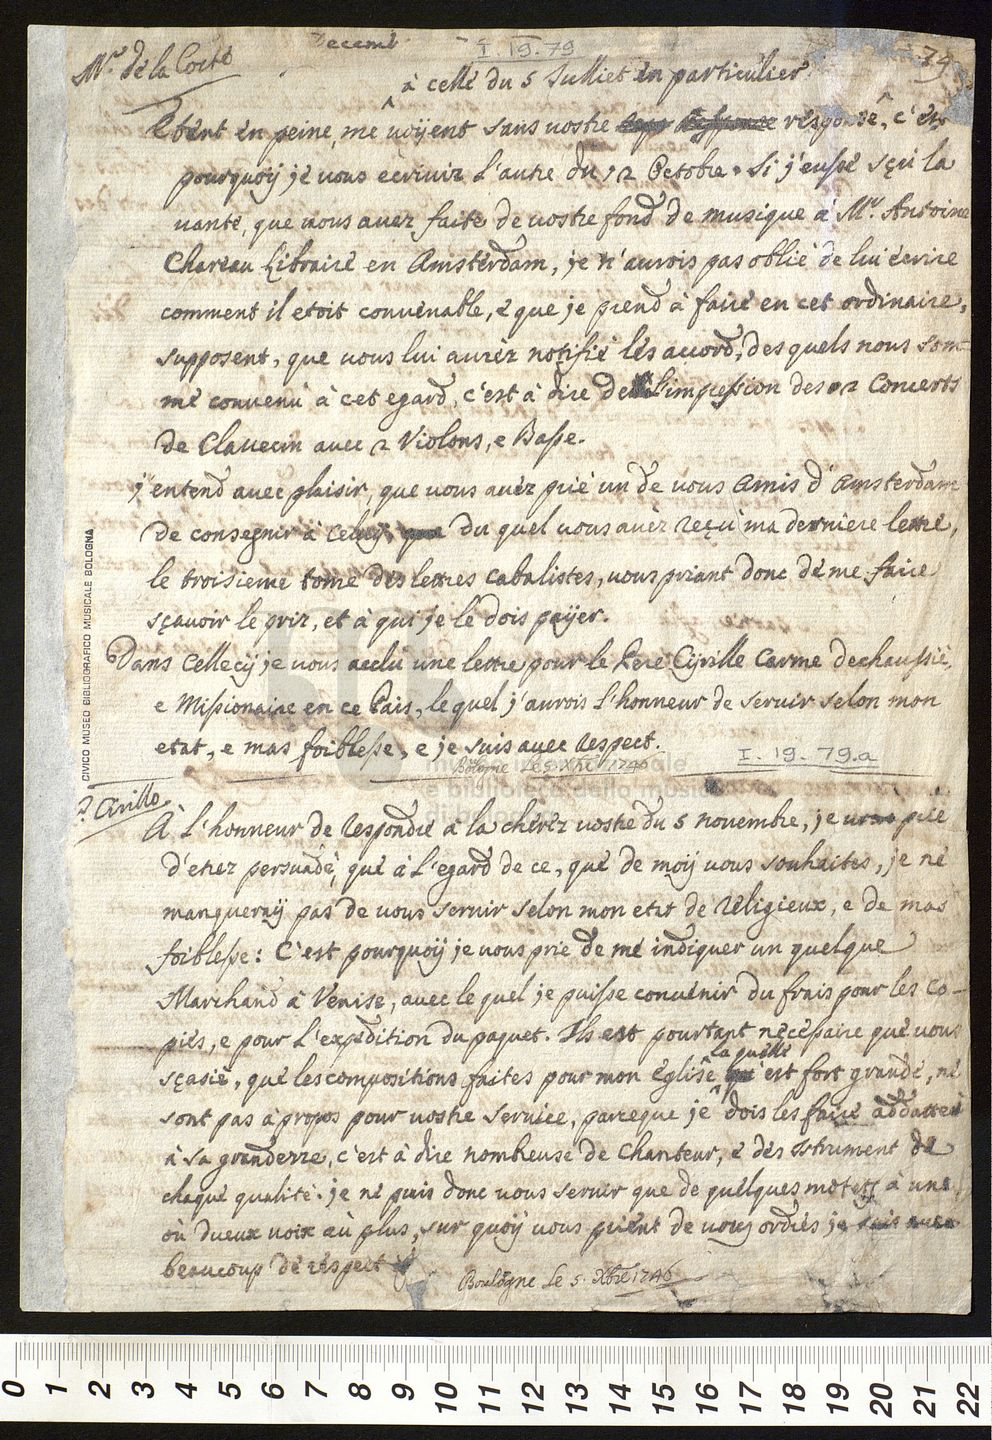 Decemb
I. 19. 79
79
Mr. de la Coste
à celle du 5 Julliet en particulier
Etent en peine, me voÿent sans vostre résponse, c'ét
pourquoÿ je vous ecrivis l'autre du 12 Octobre. Si j'eussé sçú la
vante, que vous avez faite de vostre fond de musique à Mr. Antoine
Chareau Libraire en Amsterdam, je n'aurois pas oblié de lui écrire
comment il etoit convenable, é que je prend à faire en cet ordinaire,
supposent, que vous lui aurèz notifié lés accord, des quels nous som-
mé convenú à cet egard, c'est à dire de l'impression des 12 Concerts
de Clavecin avec 2 Violons, e Basse.
j'entend avec plaisir, que vous avéz prié un de vous Amis d'Amsterdam
de consegnir à celuÿ, du quel vous avèz reçú ma derniere lettre,
le troisieme tome des lettres Cabalistes, vous priant donc dé me faire
sçavoir le prix, et à qui je le dois paÿer.
Dans Cellecÿ je vous acclú une lettre pour le Peré Cÿrille Carme dechaussié,
e Missionaire en ce Païs, le quel j'aurois l'honneur de servir selon mon
etat, e mas foiblesse, e je suis avec respect.
Bologne le 5 Xbre 1746
I. 19. 79.a
P. Cirillo
À l'honneur de respondre à la chérèz vostre du 5 novembre, je vous prié
d'etrez persuadé, qué à l'egard de ce, qué de moÿ vous souhaites, je né
manqueraÿ pas de vous servir selon mon etat de réligieux, e de mas
foiblesse: C'est pourquoÿ je vous prie de mé indiquer un quelque
Marchand à Venise, avec le quel je puisse convénir du frais pour les Co-
piés, e pour l'expedition du paquet. Ils est pourtant nécéssaire qué vous
sçasié, qué les compositions faites pour mon églisé la quélle est fort grandé, né
sont pas à propos pour vostre service, parceque je dois les faire addatter
à sa granderre, c'est à dire nombreuse de Chanteur, é dés Istrument de
chaqué qualité. je né puis donc vous servir que de quelques motets à une
oú dueux voix aù plus, sur quoÿ vous prient de vous ordrés je suis avec
beaucoup dé réspect
Boulogne Le 5. Xbre 1746
CIVICO MUSEO BIBLIOGRAFICO MUSICALE BOLOGNA
museo internazionale
e biblioteca della musica
di bologna
0 1 2 3 4 5 6 7 8 9 10 11 12 13 14 15 16 17 18 19 20 21 22